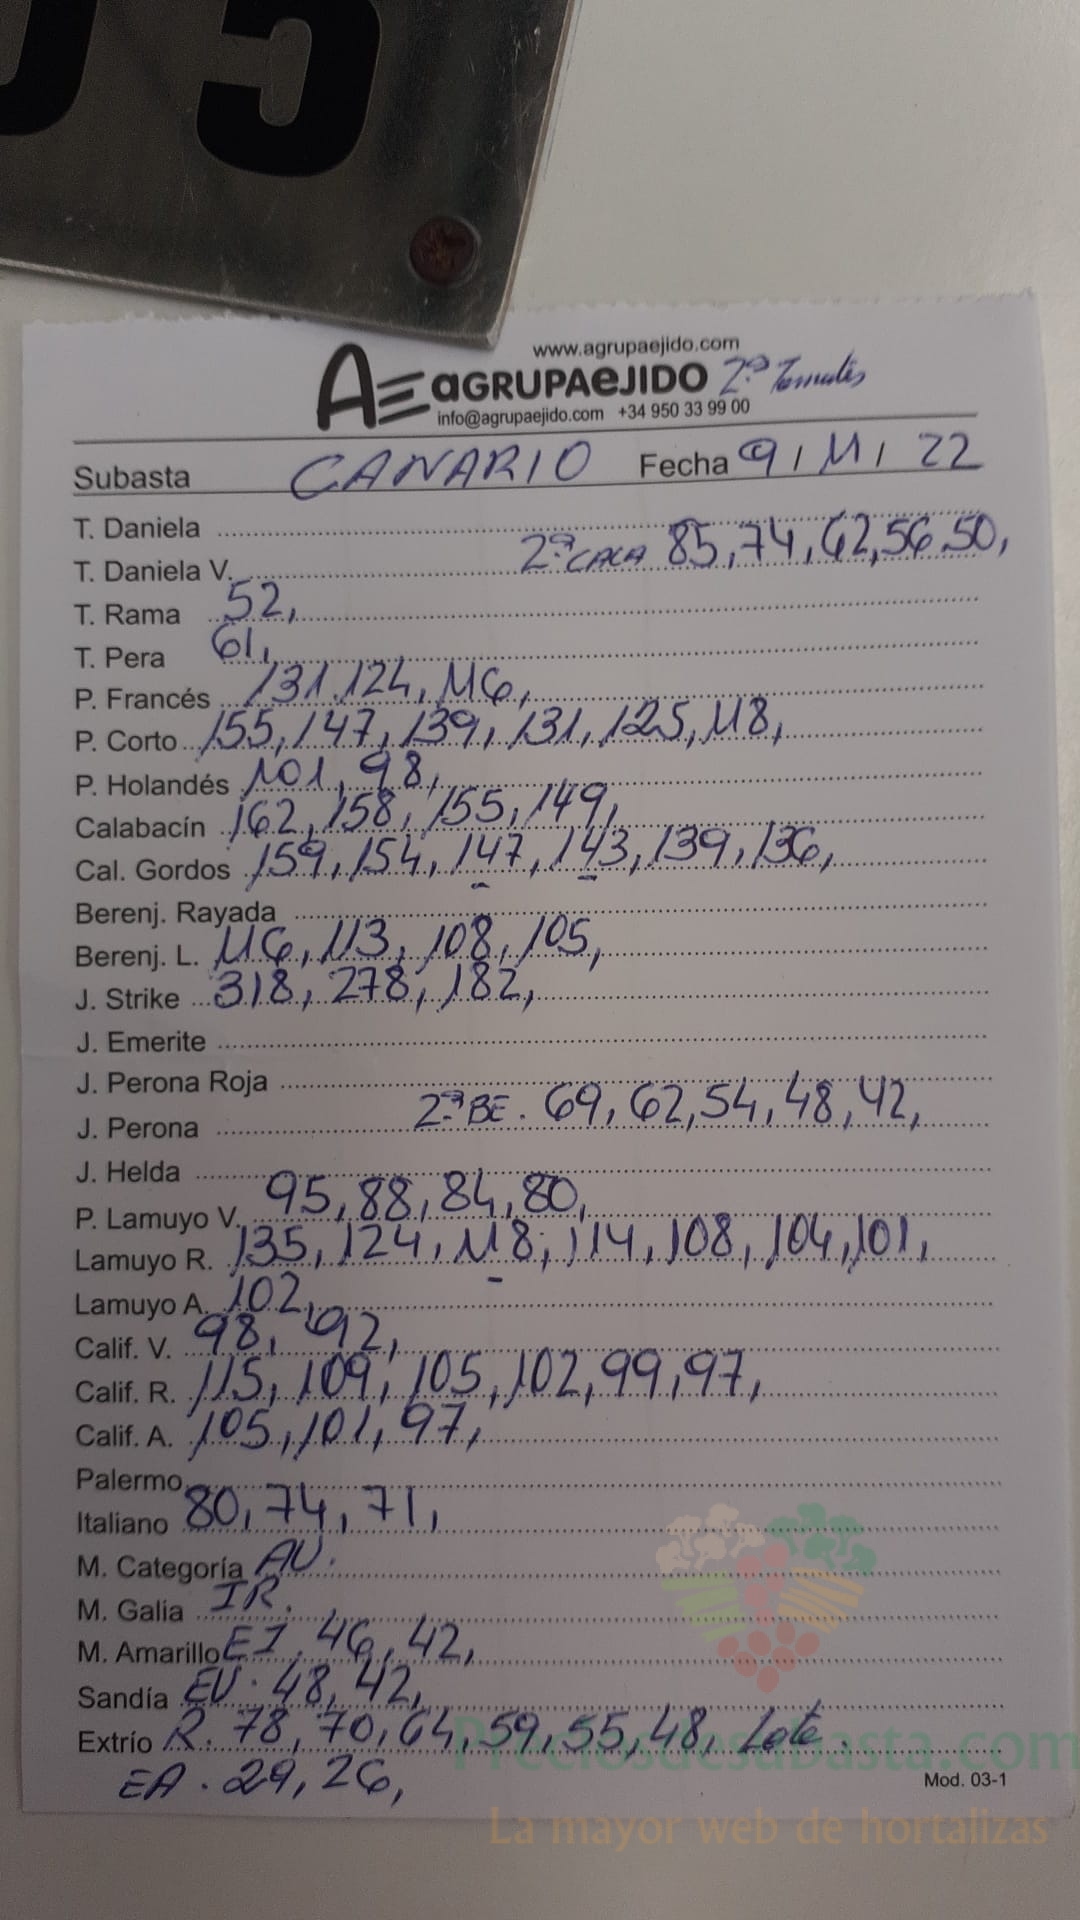 05
www.agrupaejido.com
AE aGRUPAeJIDO 2ª Tomates
info@agrupaejido.com +34 950 33 99 00
Subasta CANARIO Fecha 9/11/22
T. Daniela
T. Daniela V. 2ª CALA 85, 74, 62, 56, 50,
T. Rama 52,
T. Pera 61,
P. Francés 131, 124, 116,
P. Corto 155, 147, 139, 131, 125, 118,
P. Holandés 101, 98,
Calabacín 162, 158, 155, 149,
Cal. Gordos 159, 154, 147, 143, 139, 136,
Berenj. Rayada
Berenj. L. 116, 113, 108, 105,
J. Strike 318, 278, 182,
J. Emerite
J. Perona Roja
J. Perona 2ª BE. 69, 62, 54, 48, 42,
J. Helda
P. Lamuyo V. 95, 88, 84, 80,
Lamuyo R. 135, 124, 118, 114, 108, 104, 101,
Lamuyo A. 102,
Calif. V. 98, 92,
Calif. R. 115, 109, 105, 102, 99, 97,
Calif. A. 105, 101, 97,
Palermo
Italiano 80, 74, 71,
M. Categoría AV.
M. Galia IR.
M. Amarillo EI. 46, 42,
Sandía EV. 48, 42,
Extrío R. 78, 70, 64, 59, 55, 48, Lote.
EA. 29, 26,
Mod. 03-1
Preciosdesubasta.com
La mayor web de hortalizas